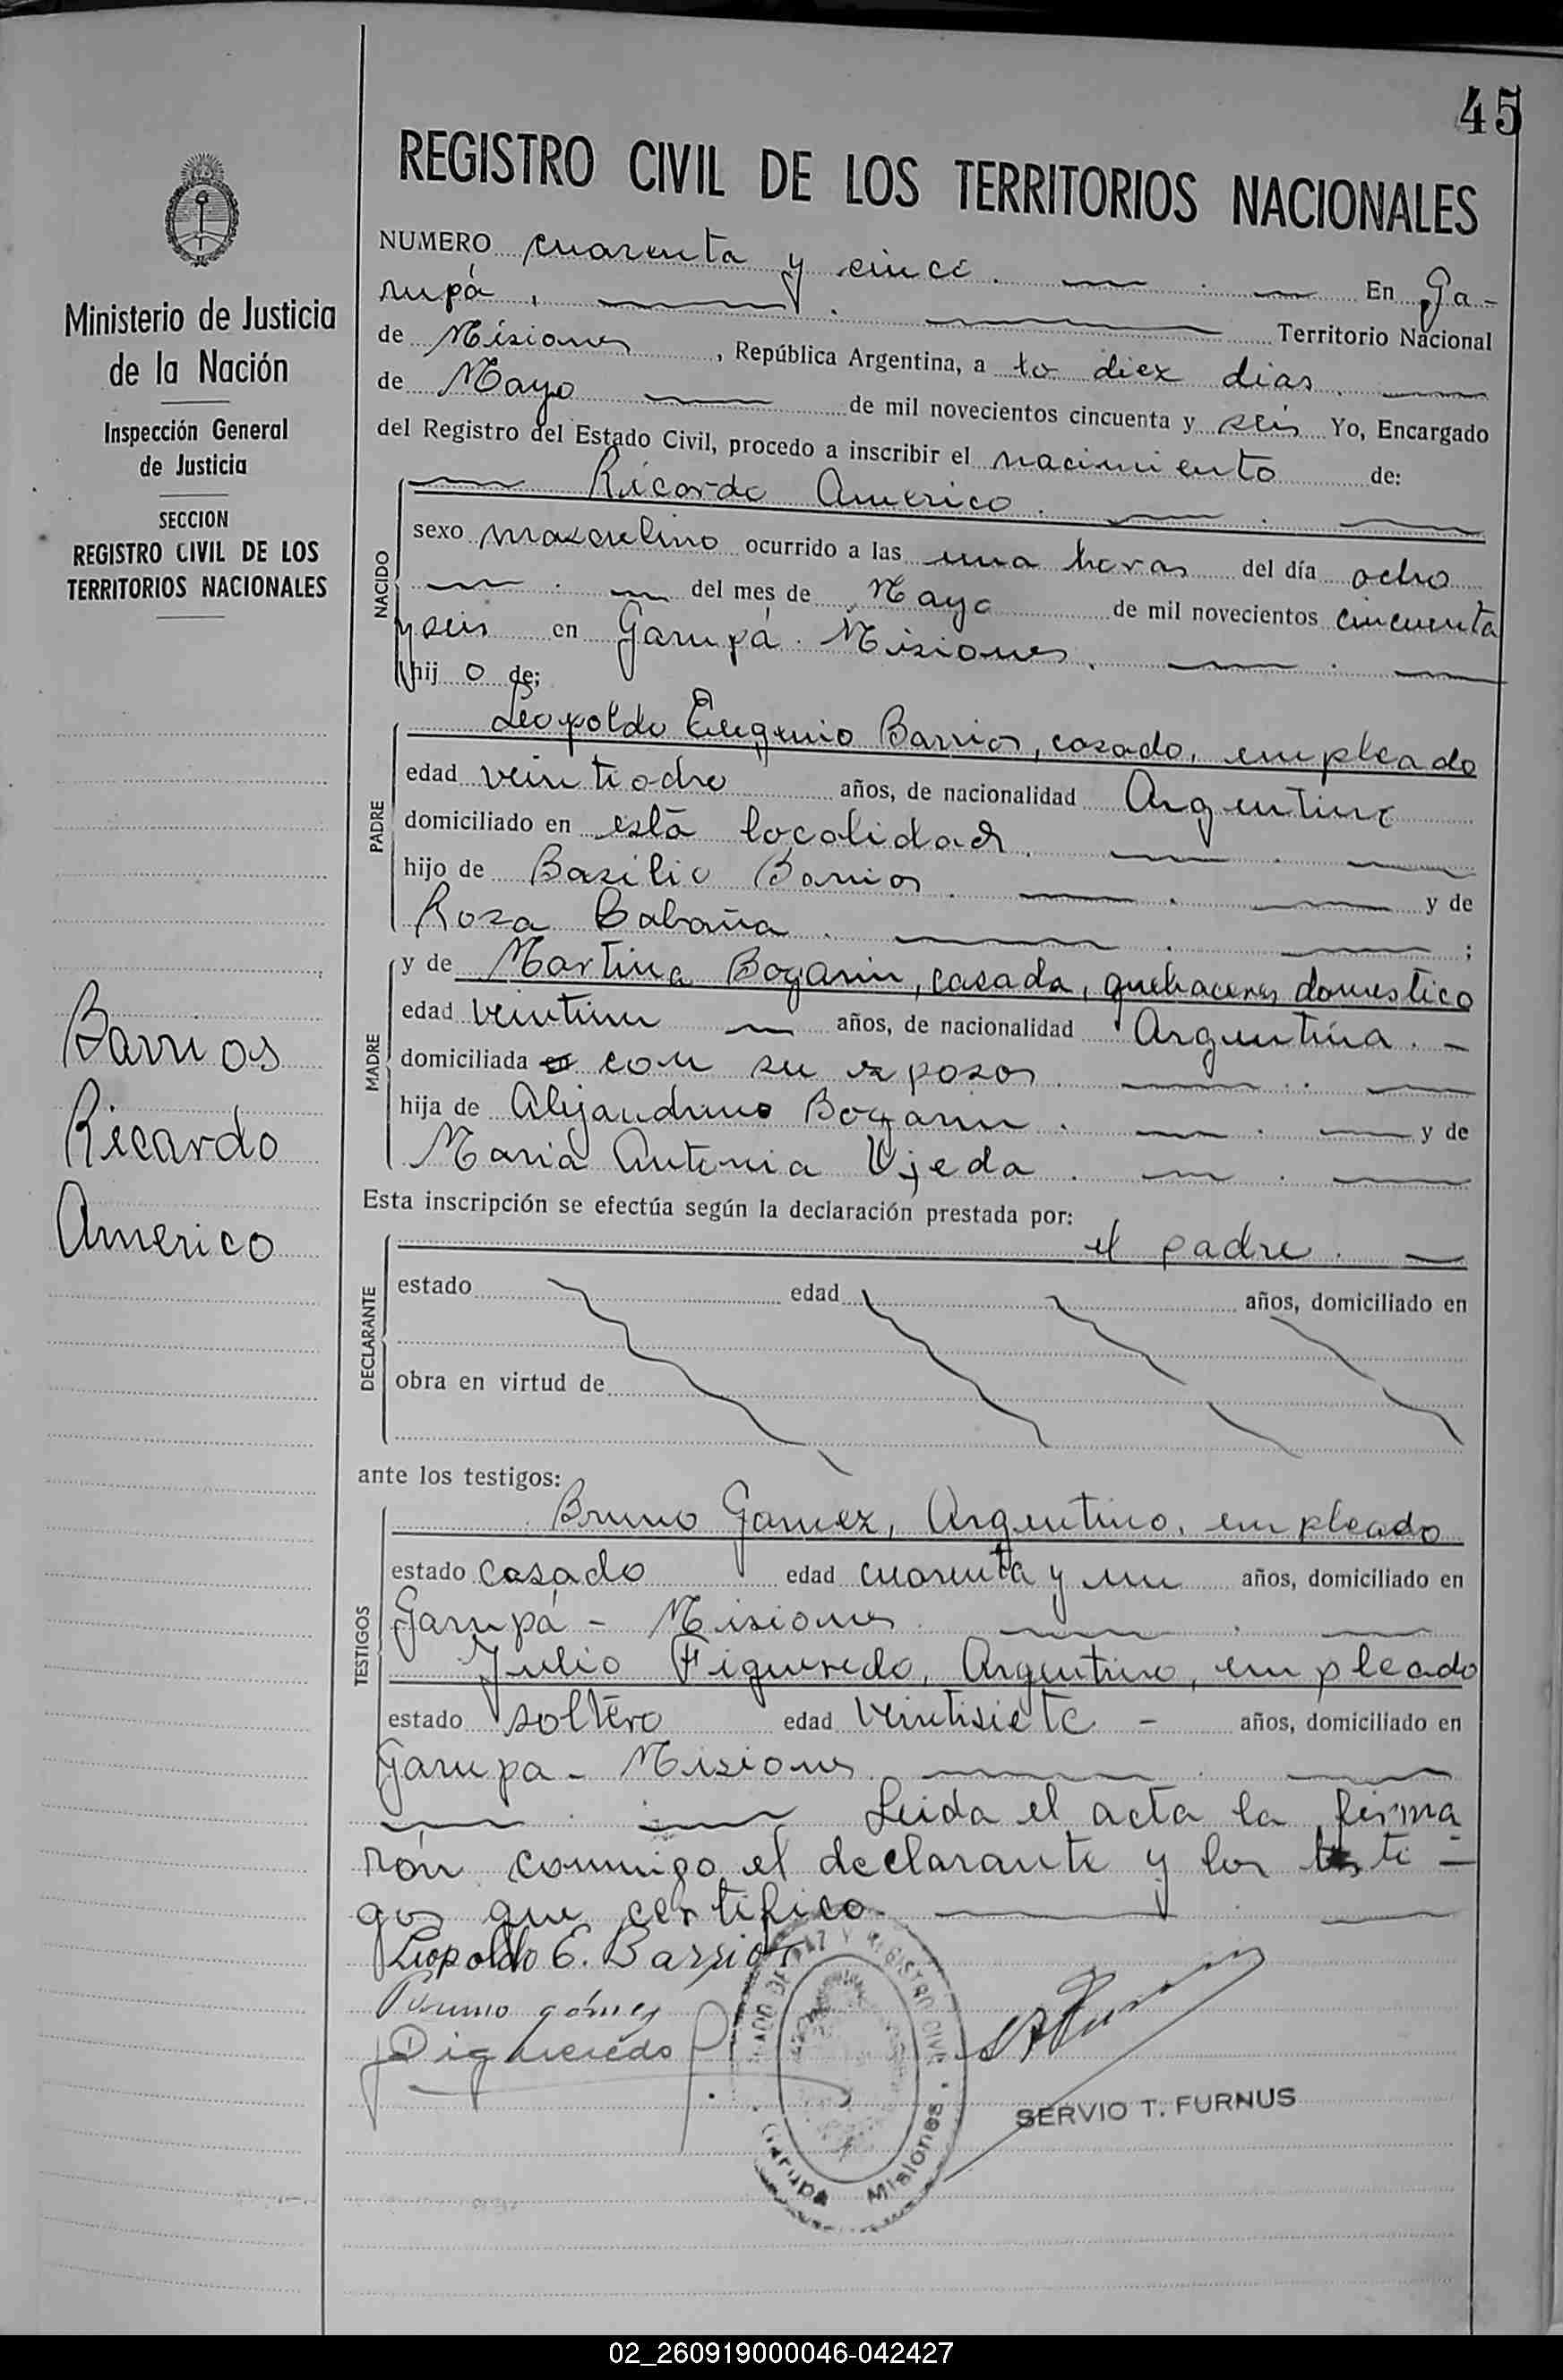 45
REGISTRO CIVIL DE LOS TERRITORIOS NACIONALES
Ministerio de Justicia
de la Nación
Inspección General
de Justicia
SECCION
REGISTRO CIVIL DE LOS
TERRITORIOS NACIONALES
Barrios
Ricardo
Americo
NUMERO cuarenta y cinco. En Ga-
rupá, Territorio Nacional
de Misiones, República Argentina, a los diez dias.
de Mayo de mil novecientos cincuenta y seis Yo, Encargado
del Registro del Estado Civil, procedo a inscribir el nacimiento de:
Ricardo Americo.
NACIDO
sexo masculino ocurrido a las una horas del día ocho
del mes de Mayo de mil novecientos cincuenta
y seis en Garupá. Misiones.
hij o de;
PADRE
Leopoldo Eugenio Barrios, casado, empleado
edad veintiocho años, de nacionalidad Argentino
domiciliado en esta localidad.
hijo de Basilio Barrios. y de
Rosa Cabaña. ;
MADRE
y de Martina Bogarin, casada, quehaceres domestico
edad veintiun años, de nacionalidad Argentina. -
domiciliada en con su esposo.
hija de Alejandrino Bogarin. y de
Maria Antonia Ojeda.
Esta inscripción se efectúa según la declaración prestada por:
el padre.
DECLARANTE
estado edad años, domiciliado en
obra en virtud de
ante los testigos:
TESTIGOS
Bruno Gamez, Argentino, empleado
estado casado edad cuarenta y un años, domiciliado en
Garupá - Misiones
Julio Figueredo, Argentino, empleado
estado soltero edad veintisiete - años, domiciliado en
Garupa - Misiones.
Leida el acta la firma
ron conmigo el declarante y los testi-
gos que certifico.
Leopoldo E. Barrios
Bruno gómez
Figueredo
JUZGADO DE PAZ Y REGISTRO CIVIL
Garupá Misiones
SERVIO T. FURNUS
02_260919000046-042427